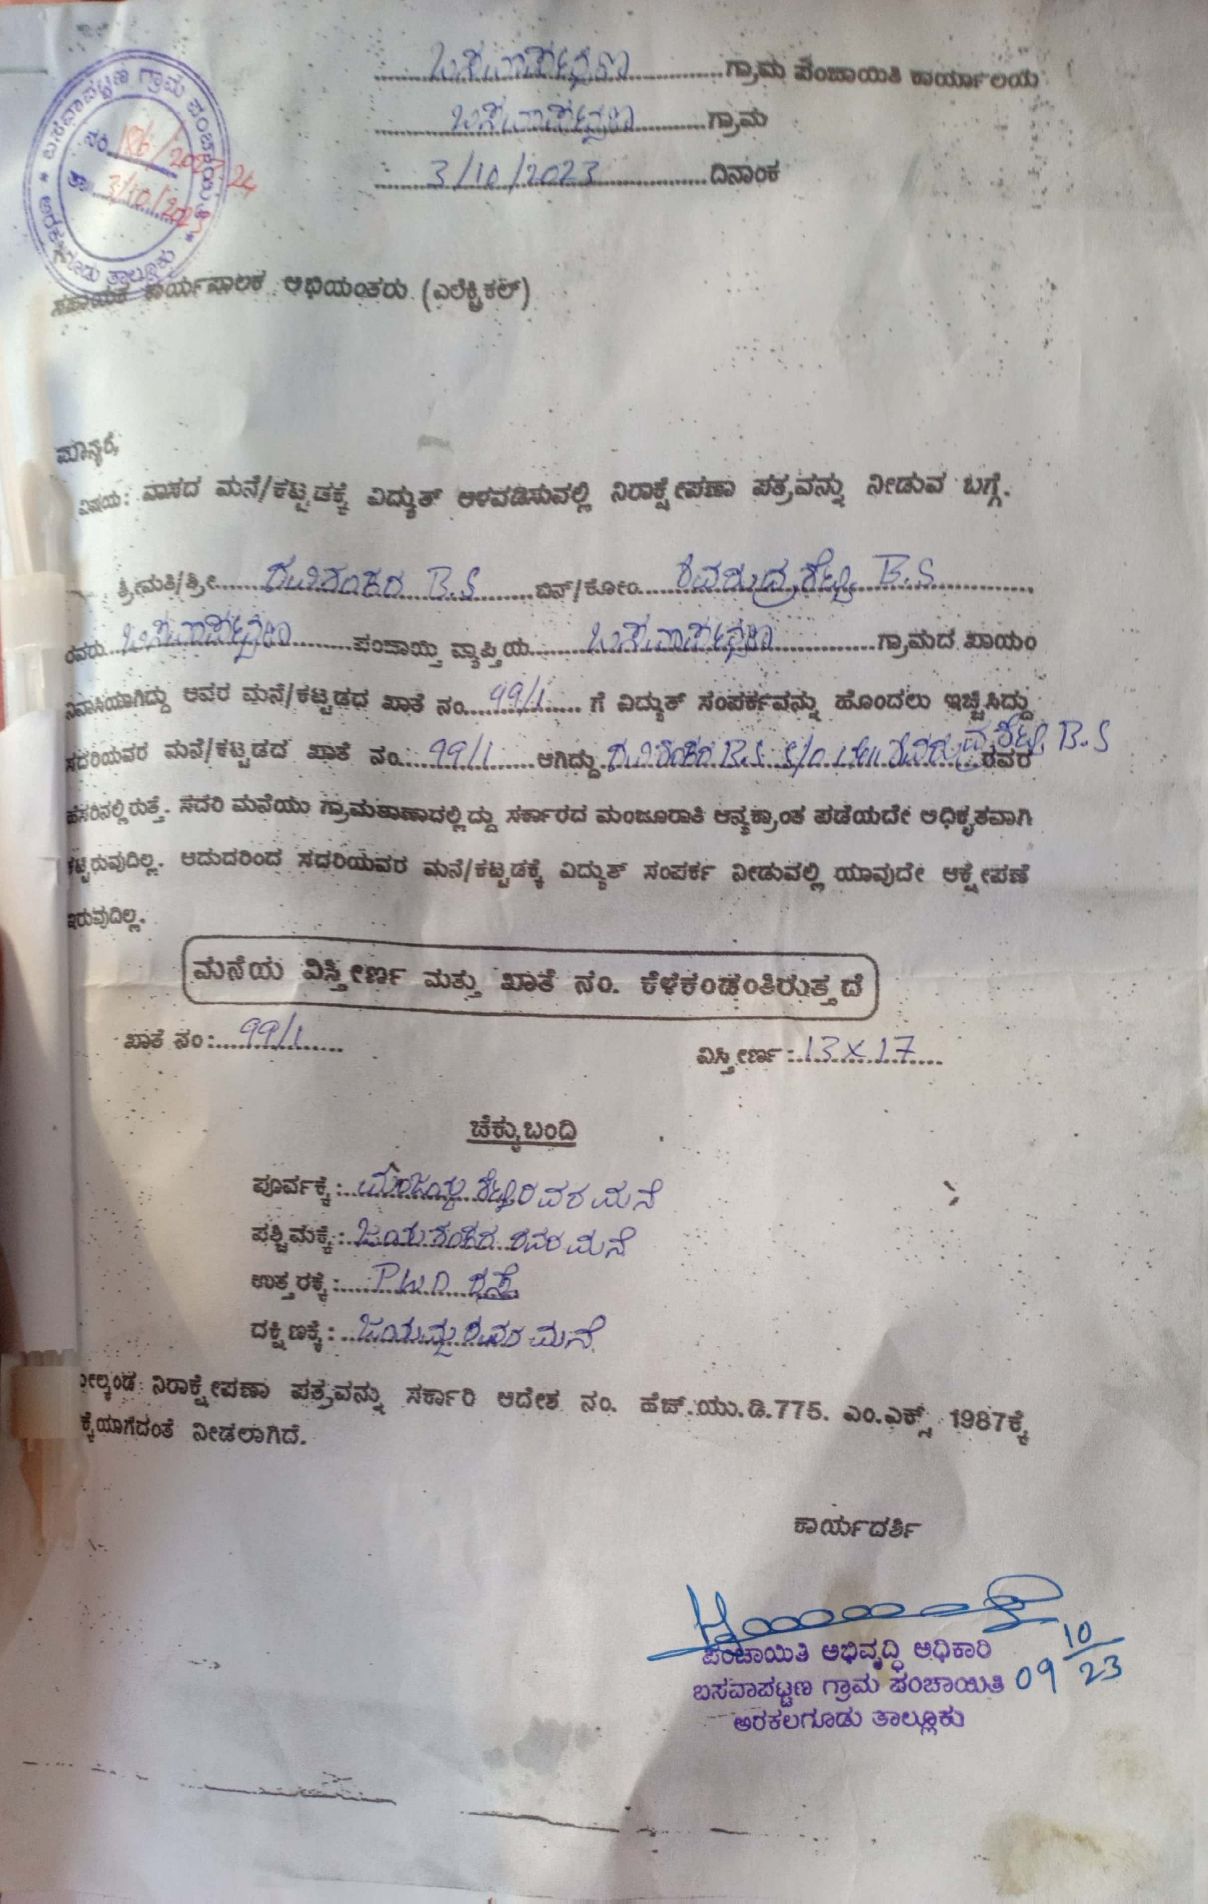 ಬಸವಾಪಟ್ಟಣ ಗ್ರಾಮ ಪಂಚಾಯಿತಿ ಕಾರ್ಯಾಲಯ
ಬಸವಾಪಟ್ಟಣ ಗ್ರಾಮ
3/10/2023 ದಿನಾಂಕ
ಬಸವಾಪಟ್ಟಣ ಗ್ರಾಮ ಪಂಚಾಯಿತಿ * ಅರಕಲಗೂಡು ತಾಲ್ಲೂಕು *
ನಂ. 186/2023-24
ತಾ 3/10/2023
ಸಹಾಯಕ ಕಾರ್ಯಪಾಲಕ ಅಭಿಯಂತರು (ಎಲೆಕ್ಟ್ರಿಕಲ್)
ಮಾನ್ಯರೆ,
ವಿಷಯ: ವಾಸದ ಮನೆ/ಕಟ್ಟಡಕ್ಕೆ ವಿದ್ಯುತ್ ಅಳವಡಿಸುವಲ್ಲಿ ನಿರಾಕ್ಷೇಪಣಾ ಪತ್ರವನ್ನು ನೀಡುವ ಬಗ್ಗೆ.
ಶ್ರೀಮತಿ/ಶ್ರೀ ರವಿಶಂಕರ B.S ಬಿನ್/ಕೋಂ ಶಿವರುದ್ರಶೆಟ್ಟಿ B.S
ರವರು ಬಸವಾಪಟ್ಟಣ ಪಂಚಾಯ್ತಿ ವ್ಯಾಪ್ತಿಯ ಬಸವಾಪಟ್ಟಣ ಗ್ರಾಮದ ಖಾಯಂ
ನಿವಾಸಿಯಾಗಿದ್ದು ಅವರ ಮನೆ/ಕಟ್ಟಡದ ಖಾತೆ ನಂ. 99/1 ಗೆ ವಿದ್ಯುತ್ ಸಂಪರ್ಕವನ್ನು ಹೊಂದಲು ಇಚ್ಚಿಸಿದ್ದು
ಸದರಿಯವರ ಮನೆ/ಕಟ್ಟಡದ ಖಾತೆ ನಂ. 99/1 ಆಗಿದ್ದು ರವಿಶಂಕರ B.S S/O ಶಿವರುದ್ರಶೆಟ್ಟಿ B.S ರವರ
ಹೆಸರಿನಲ್ಲಿರುತ್ತೆ. ಸದರಿ ಮನೆಯು ಗ್ರಾಮಠಾಣಾದಲ್ಲಿದ್ದು ಸರ್ಕಾರದ ಮಂಜೂರಾತಿ ಅನ್ಯಕ್ರಾಂತ ಪಡೆಯದೇ ಅಧಿಕೃತವಾಗಿ
ಕಟ್ಟಿರುವುದಿಲ್ಲ. ಆದುದರಿಂದ ಸದರಿಯವರ ಮನೆ/ಕಟ್ಟಡಕ್ಕೆ ವಿದ್ಯುತ್ ಸಂಪರ್ಕ ನೀಡುವಲ್ಲಿ ಯಾವುದೇ ಆಕ್ಷೇಪಣೆ
ಇರುವುದಿಲ್ಲ.
ಮನೆಯ ವಿಸ್ತೀರ್ಣ ಮತ್ತು ಖಾತೆ ನಂ. ಕೆಳಕಂಡಂತಿರುತ್ತದೆ
ಖಾತೆ ನಂ: 99/1 ವಿಸ್ತೀರ್ಣ: 13 X 17
ಚೆಕ್ಕುಬಂದಿ
ಪೂರ್ವಕ್ಕೆ: ಮಂಜಯ್ಯಶೆಟ್ಟಿರವರ ಮನೆ
ಪಶ್ಚಿಮಕ್ಕೆ: ಜಯಶಂಕರ ರವರ ಮನೆ
ಉತ್ತರಕ್ಕೆ: P.W.D ರಸ್ತೆ
ದಕ್ಷಿಣಕ್ಕೆ: ಜಯಮ್ಮ ರವರ ಮನೆ
ಮೇಲ್ಕಂಡ ನಿರಾಕ್ಷೇಪಣಾ ಪತ್ರವನ್ನು ಸರ್ಕಾರಿ ಆದೇಶ ನಂ. ಹೆಚ್.ಯು.ಡಿ.775. ಎಂ.ಎಕ್ಸ್. 1987ಕ್ಕೆ
ಕ್ಕೆಯಾಗೆದಂತೆ ನೀಡಲಾಗಿದೆ.
ಕಾರ್ಯದರ್ಶಿ
ಪಂಚಾಯಿತಿ ಅಭಿವೃದ್ಧಿ ಅಧಿಕಾರಿ
ಬಸವಾಪಟ್ಟಣ ಗ್ರಾಮ ಪಂಚಾಯಿತಿ 09/10/23
ಅರಕಲಗೂಡು ತಾಲ್ಲೂಕು